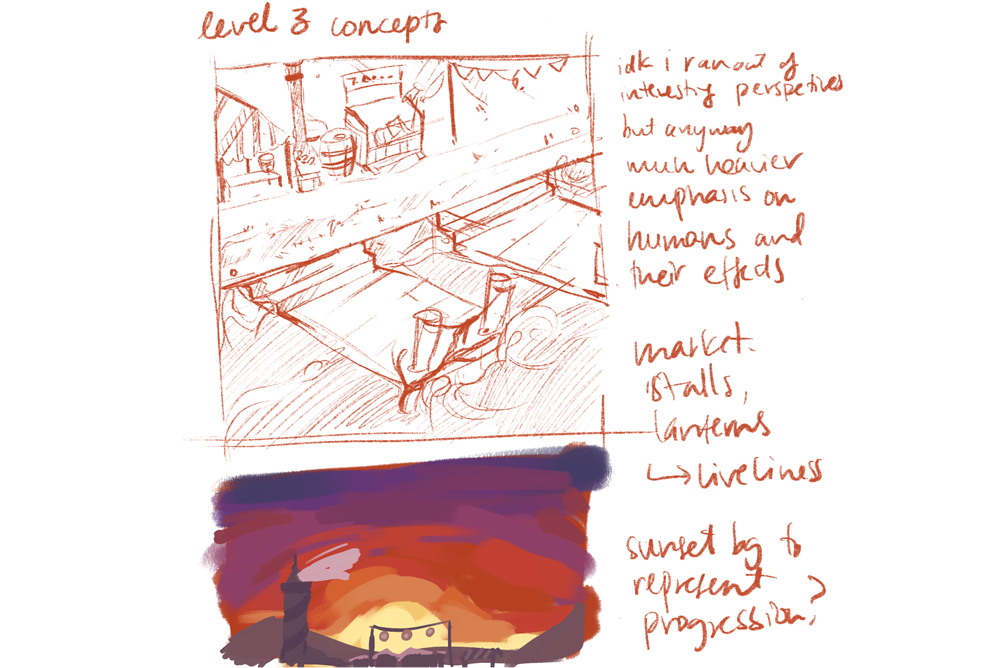 level 3 concepts
idk i ran out of
interesting perspetives
but anyway
much heavier
emphasis on
humans and
their effects
market
stalls,
lanterns
↳ liveliness
sunset bg to
represent
progression?